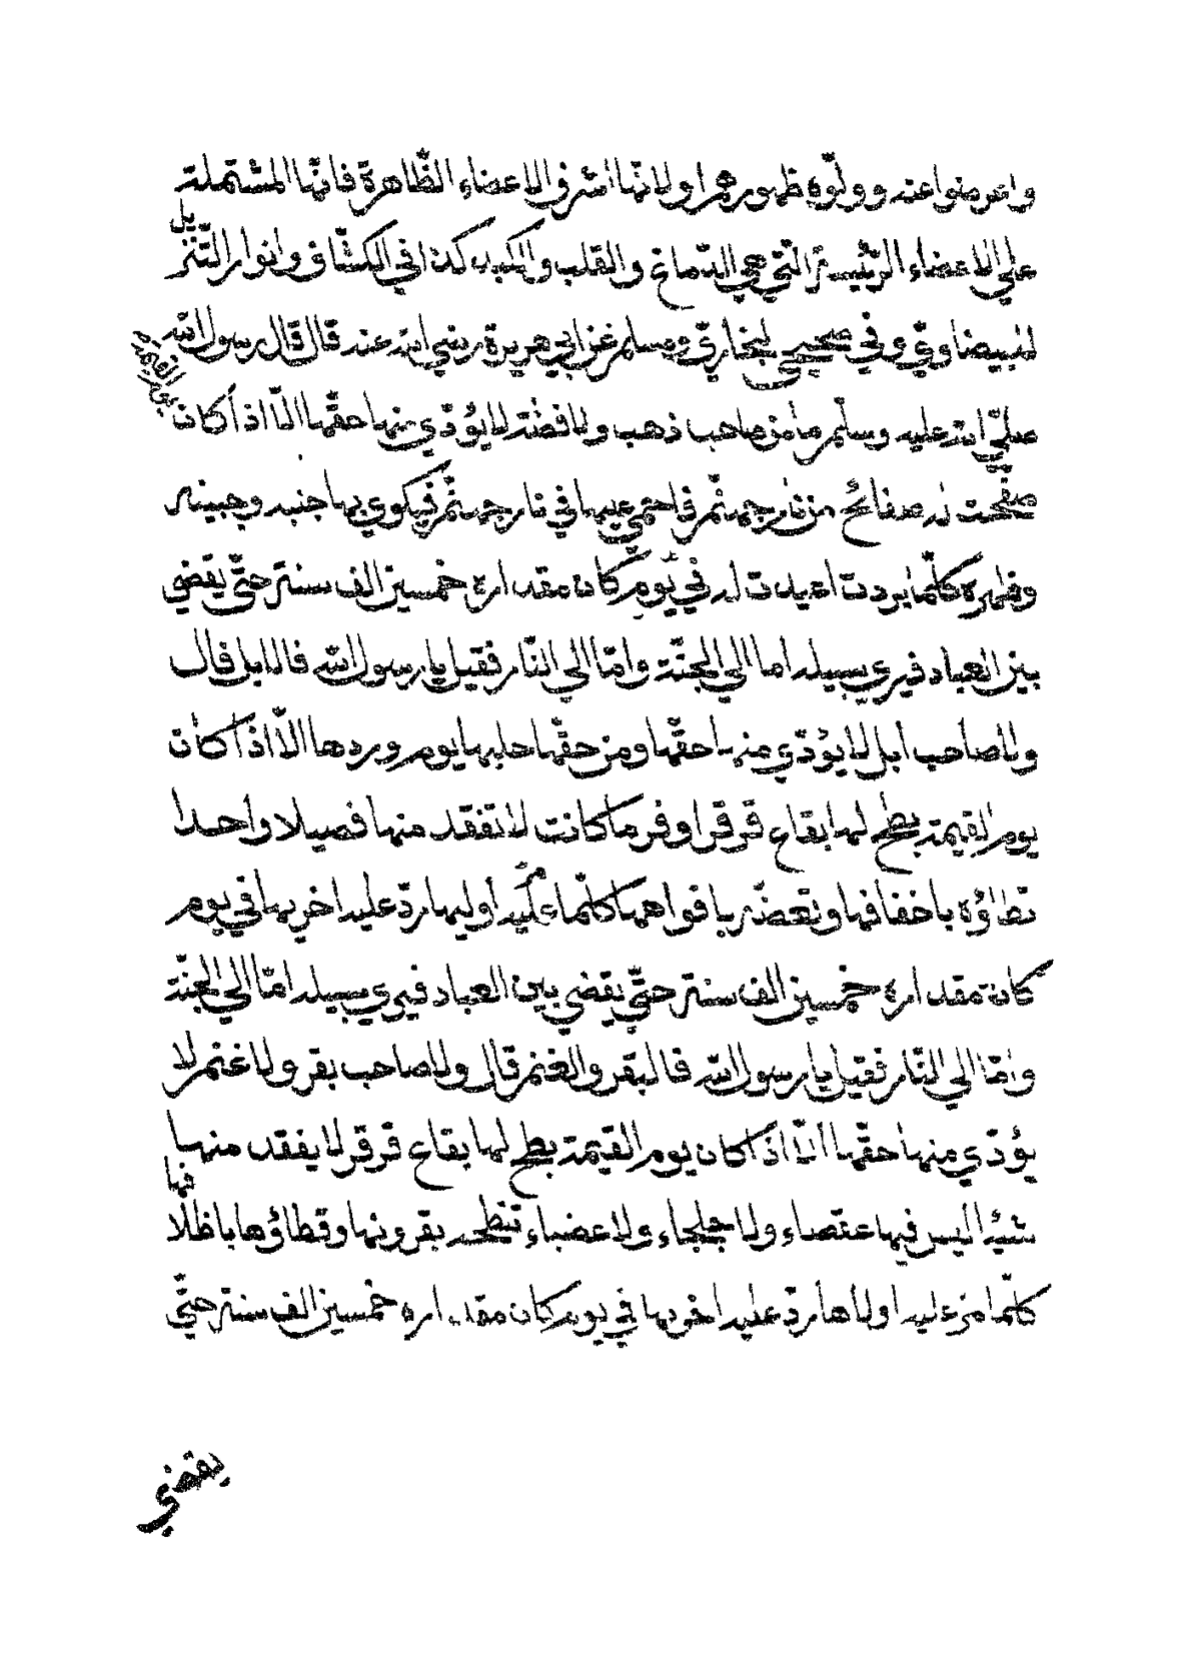 واعرضوا عنه وولّوه ظهورهم او لانّها اشرف الاعضاء الظّاهرة فانّها المشتملة
علي الاعضاء الرّئيسة الّتي هي الدّماغ والقلب والكبد كذا في الكشّاف وانوار التّنزيل
للبيضاوي وفي صحيحي البخاري ومسلم عن ابي هريرة رضي الله عنه قال قال رسول الله
صلّي الله عليه وسلّم ما من صاحب ذهب ولا فضّة لا يؤدّي منها حقّها الّا اذا كان
يوم القيمة
صفّحت له صفائح من نار جهنّم فاحمي عليها في نار جهنّم فيكوي بها جنبه وجبينه
وظهره كلّما بردت اعيدت له في يوم كان مقداره خمسين الف سنة حتّي يقضي
بين العباد فيري سبيله اما الي الجنّة وامّا الي النّار فقيل يا رسول الله فالابل قال
ولا صاحب ابل لا يؤدّي منها حقّها ومن حقّها حلبها يوم وردها الّا اذا كان
يوم القيمة بطح لها بقاع قرقر اوفر ما كانت لا تفقد منها فصيلا واحدا
تطاؤه باخفافها وتعضّه بافواهها كلّما مر عليه أوليها ردّ عليه اخريها في يوم
كان مقداره خمسين الف سنة حتّي يقضي بين العباد فيري سبيله امّا الي الجنّة
وامّا الي النّار فقيل يا رسول الله فالبقر والغنم قال ولا صاحب بقر ولا غنم لا
يؤدّي منها حقّها الّا اذا كان يوم القيمة بطح لها بقاع قرقر لا يفقد منها
شيئا ليس فيها عقصاء ولا جلجاء ولا عضباء تنطحه بقرونها وتطاؤها باظلافها
كلّما مر عليه اولاها ردّ عليه اخريها في يوم كان مقداره خمسين الف سنة حتّي
يقضي